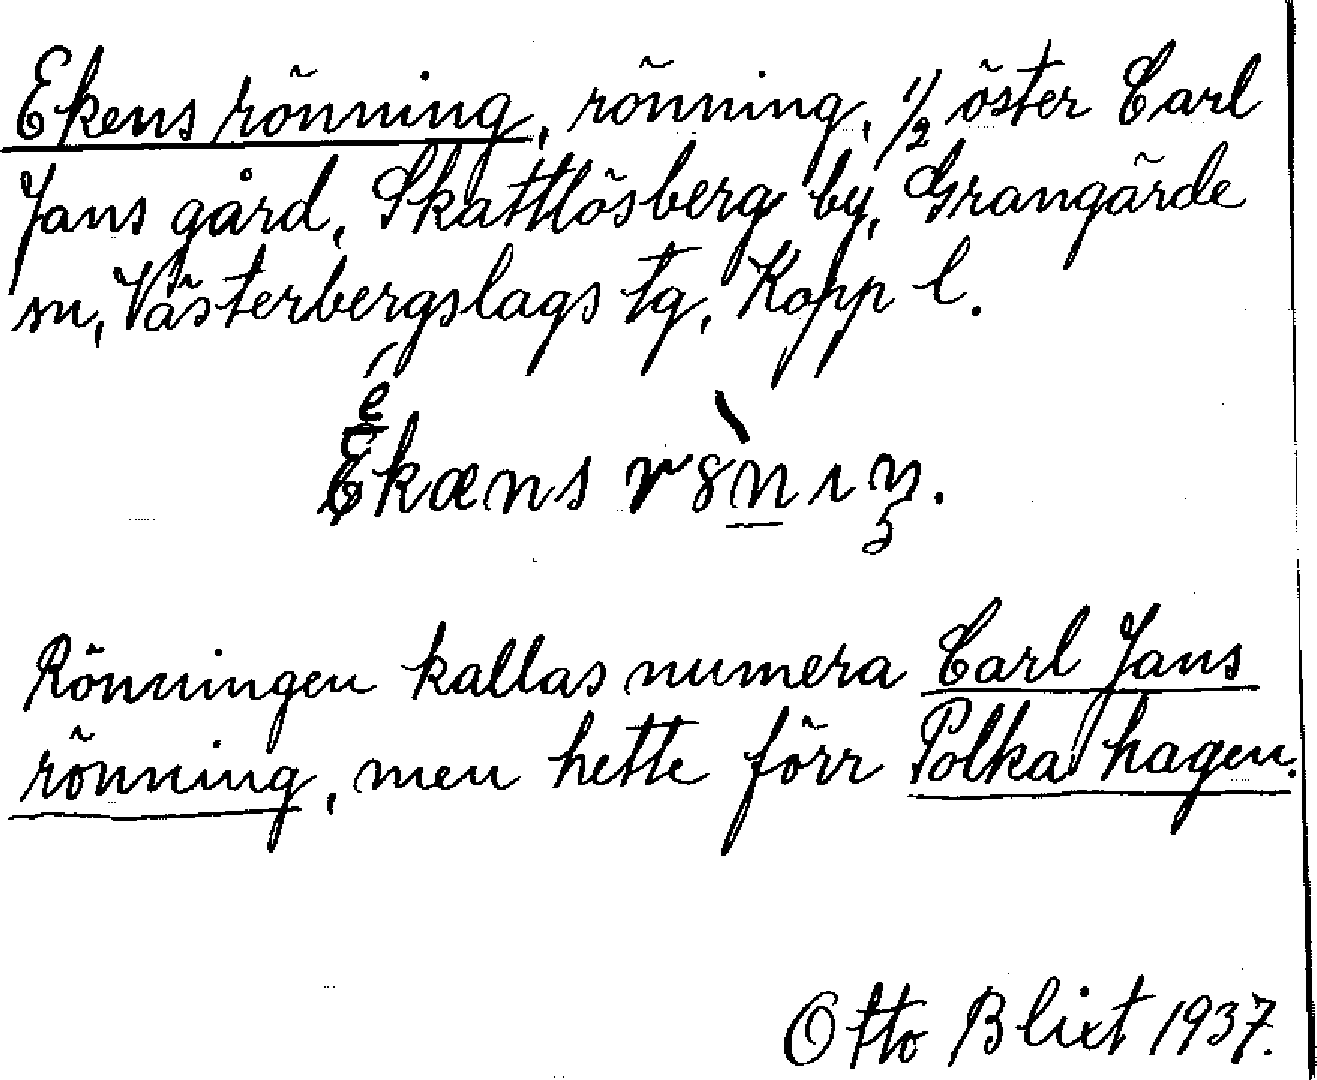 Ekens rönning, rönning, 1/2 öster Carl
Jans gård, Skattlösberg by, Grangärde
sn, Västerbergslags tg, Kopp l.
é
Ekæns r8̀nıŋ.
Rönningen kallas numera Carl Jans
rönning, men hette förr Polka hagen.
Otto Blixt 1937.